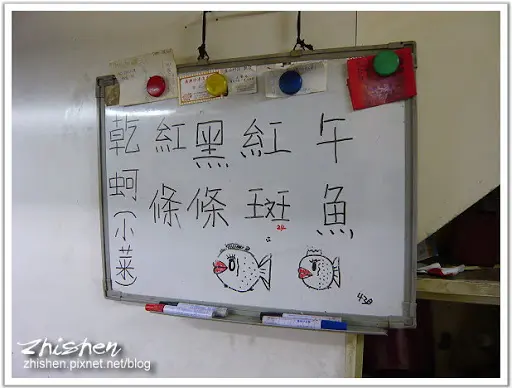 午魚
紅斑
黑條
紅條
乾蚵(小菜)
430
Zhishen
zhishen.pixnet.net/blog